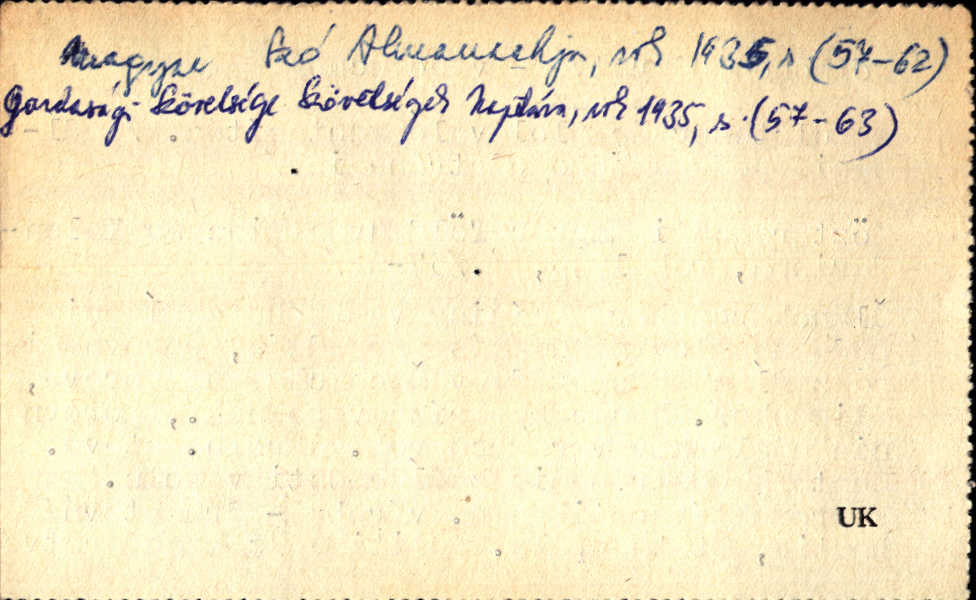 Magyar Szó Almanachja, rok 1935, s (57-62)
Gazdasági Szövetsége Szövetségek Naptára, rok 1935, s. (57-63)
UK